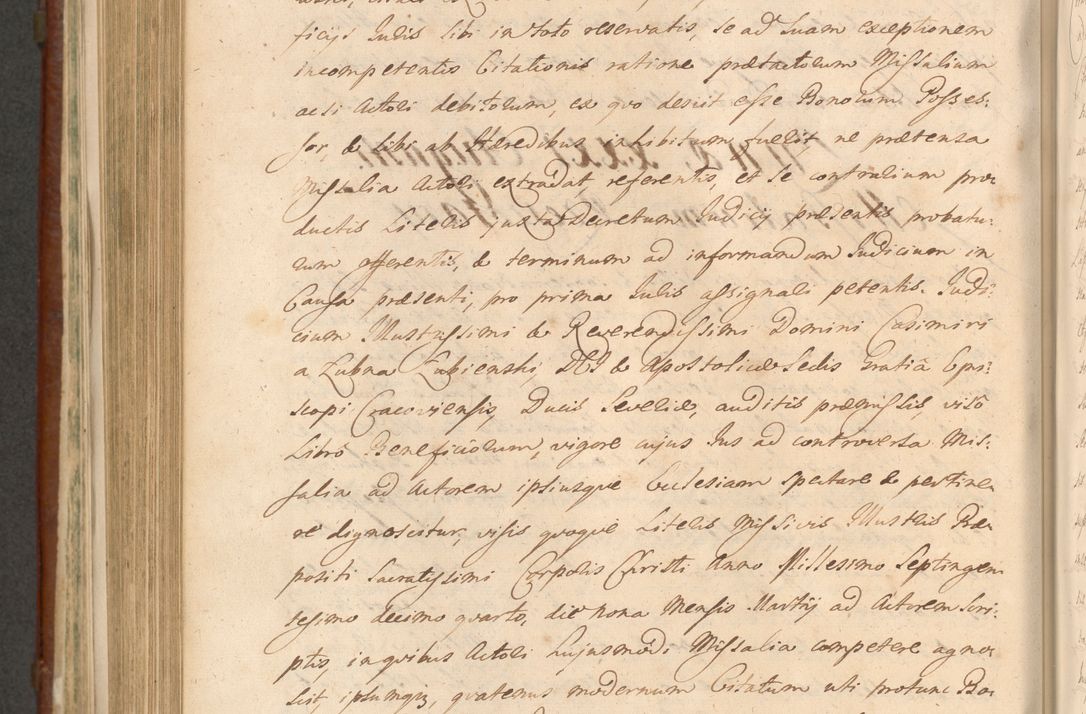 ficijs Iuris sibi in toto reservatis, se ad suam exceptionem
incompetentis Citationis ratione prætactorum Missalium
acsi Actori debitorum, ex quo desiit esse Bonorum Posses:
sor, & sibi ab Hæredibus inhibitum fuerit ne prætensa
Missalia Actori extradat, referentis, et se contrarium pro
ductis Literis juxta Decretum Iudicij præsentis probatu:
rum offerentis, & terminum ad informandum Iudicium in
Causa præsenti, pro prima Iuris assignari petentis. Iudi:
cium Illustrissimi & Reverendissimi Domini Casimiri
a Łubna Łubienski, DEI & Apostolicæ Sedis Gratiâ Epi:
scopi Cracoviensis, Ducis Severiæ, auditis præmissis visô
Librô Beneficiorum, vigore cujus Ius ad controversa Mis:
salia ad Actorem ipsiusque Ecclesiam spectare & pertine
re dignoscitur, visis quoque Literis Missivis Illustris Præ
positi Sacratissimi Corporis Christi Anno Millesimo Septingen
tesimo decimo quarto, die Nona Mensis Martij ad Actorem scri:
ptis, in quibus Actori hujusmodi Missalia competere agno
scit, ipsumq3, quatenus modernum Citatum uti protunc Bo